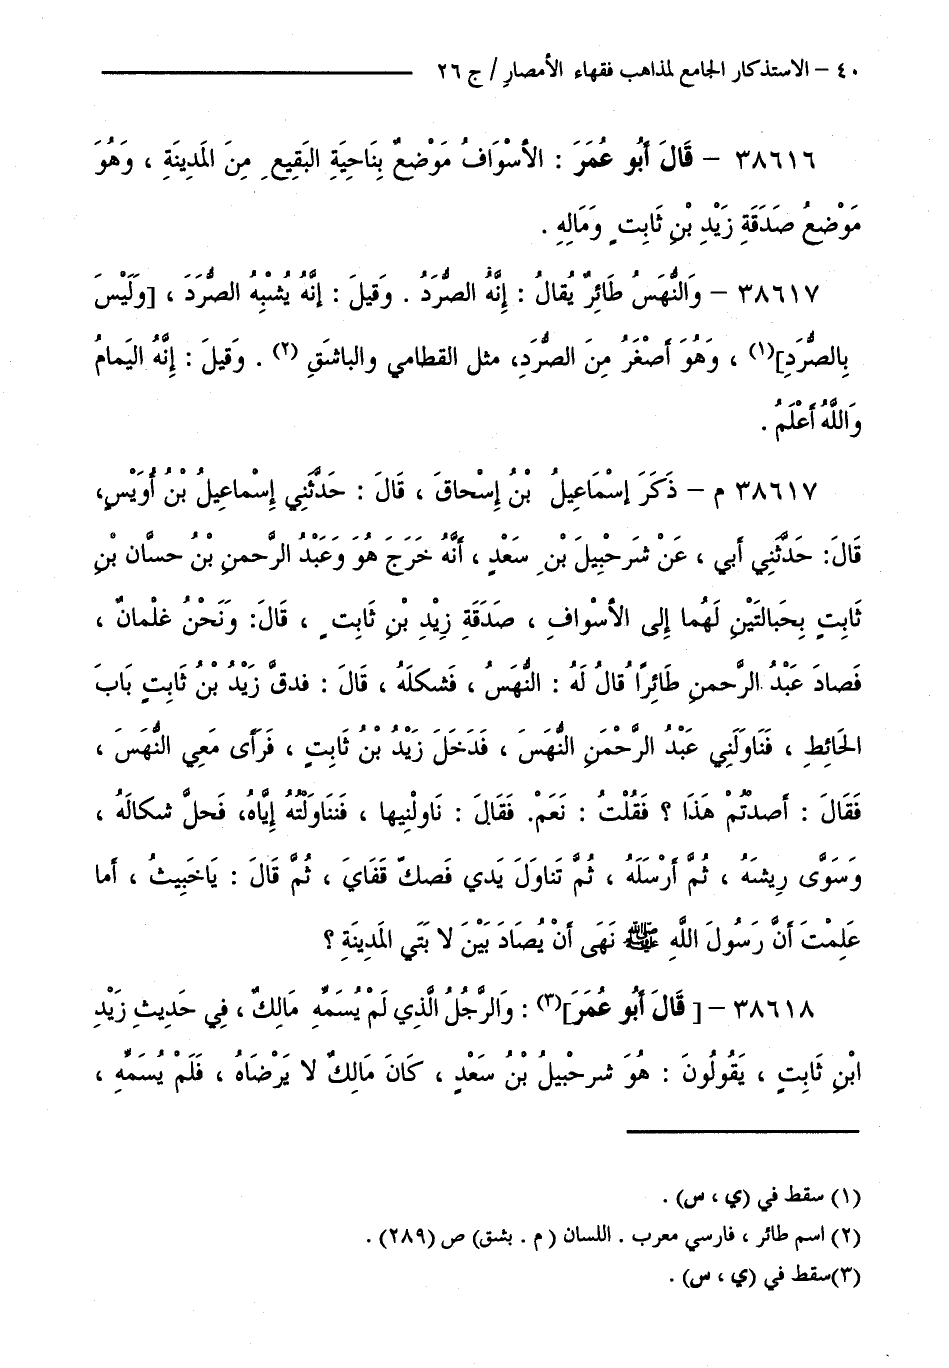 ٤٠ – الاستذكار الجامع لمذاهب فقهاء الأمصار / ج ٢٦
٣٨٦١٦ – قَالَ أَبُو عُمَرَ : الأسْوَافُ مَوْضِعٌ بِنَاحِيَةِ البَقِيعِ مِنَ المَدِينَةِ ، وَهُوَ
مَوْضِعُ صَدَقَةِ زَيْدِ بْنِ ثَابِتٍ وَمَالِهِ .
٣٨٦١٧ – وَالنُّهَسُ طَائِرٌ يُقالُ : إِنَّهُ الصُّرَدُ . وَقِيلَ : إنَّهُ يُشْبِهُ الصُّرَدَ ، [وَلَيْسَ
بِالصُّرَدِ](١) ، وَهُوَ أصْغَرُ مِنَ الصُّرَدِ، مثل القطامي والباشَقِ (٢) . وَقِيلَ : إِنَّهُ اليَمامُ
وَاللَّهُ أَعْلَمُ .
٣٨٦١٧ م – ذَكَرَ إسْمَاعِيلُ بْنُ إِسْحاقَ ، قَالَ : حَدَّثَنِي إِسْماعِيلُ بْنُ أُوَيْسٍ،
قَالَ: حَدَّثَنِي أبي ، عَنْ شرَحْبِيلَ بْنِ سَعْدٍ ، أنَّهُ خَرَجَ هُوَ وَعَبْدُ الرَّحمنِ بْنُ حسَّان بْنِ
ثَابِتٍ بِحَبالتَيْنِ لَهُما إِلى الأسْوافِ ، صَدَقَةِ زِيْدِ بْنِ ثَابِتٍ ، قَالَ: وَنَحْنُ غلْمانٌ ،
فَصادَ عَبْدُ الرَّحمنِ طَائِرًا قُالُ لَهُ : النُّهَسُ ، فَشكلَهُ ، قَالَ : فدقَّ زَيْدُ بْنُ ثَابِتٍ بَابَ
الحَائِطِ ، فَنَاوَلَنِي عَبْدُ الرَّحْمَنِ النُّهَسَ ، فَدَخَلَ زَيْدُ بْنُ ثَابِتٍ ، فَرَأى مَعِي النُّهَسَ ،
فَقَالَ : أصدْتُمْ هَذَا ؟ فَقُلْتُ : نَعَمْ. فَقَالَ : نَاولْنِيها ، فَنَناوَلْتُهُ إِيَّاهُ، فَحلَّ شكالَهُ ،
وَسَوَّى رِيشَهُ ، ثُمَّ أَرْسَلَهُ ، ثُمَّ تَناوَلَ يَدي فَصكّ قَفَايَ ، ثُمَّ قَالَ : يَاخَبِيثُ ، أَما
عَلِمْتَ أَنَّ رَسُولَ اللَّهِ ﷺ نَهَى أَنْ يُصَادَ بَيْنَ لا بَتَي المَدِينَةِ ؟
٣٨٦١٨ – [ قَالَ أَبُو عُمَرَ](٣) : وَالرَّجُلُ الَّذِي لَمْ يُسَمِّهِ مَالِكٌ ، فِي حَدِيثِ زَيْدِ
ابْنِ ثَابِتٍ ، يَقُولُونَ : هُوَ شرحبيلُ بْنُ سَعْدٍ ، كَانَ مَالِكٌ لا يَرْضَاهُ ، فَلَمْ يُسَمِّهِ ،
(١) سقط في (ي ، س) .
(٢) اسم طائر ، فارسي معرب . اللسان ( م . بشق) ص (٢٨٩) .
(٣)سقط في (ي ، س) .